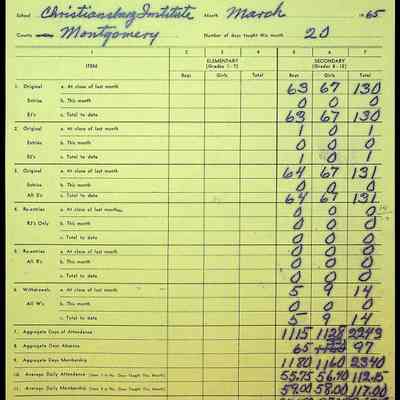 School Christiansburg Institute Month March 1965
County Montgomery Number of days taught this month 20
1 2 3 4 5 6 7
ITEM ELEMENTARY (Grades 1-7) SECONDARY (Grades 8-12)
Boys Girls Total Boys Girls Total
1. Original a. At close of last month 63 67 130
Entries b. This month 0 0 0
E1's c. Total to date 63 67 130
2. Original a. At close of last month 1 0 1
Entries b. This month 0 0 0
E2's c. Total to date 1 0 1
3. Original a. At close of last month 64 67 131
Entries b. This month 0 0 0
All E's c. Total to date 64 67 131
4. Re-entries a. At close of last month 0 0 0
R3's Only b. This month 0 0 0
c. Total to date 0 0 0
5. Re-entries a. At close of last month 0 0 0
All R's b. This month 0 0 0
c. Total to date 0 0 0
6. Withdrawals a. At close of last month 5 9 14
All W's b. This month 0 0 0
c. Total to date 5 9 14
7. Aggregate Days of Attendance 1115 1128 2243
8. Aggregate Days Absence 65 97
9. Aggregate Days Membership 1180 1160 2340
10. Average Daily Attendance (Item 7 ÷ No. Days Taught This Month) 55.75 56.40 112.15
11. Average Daily Membership (Item 9 ÷ No. Days Taught This Month) 59.00 58.00 117.00